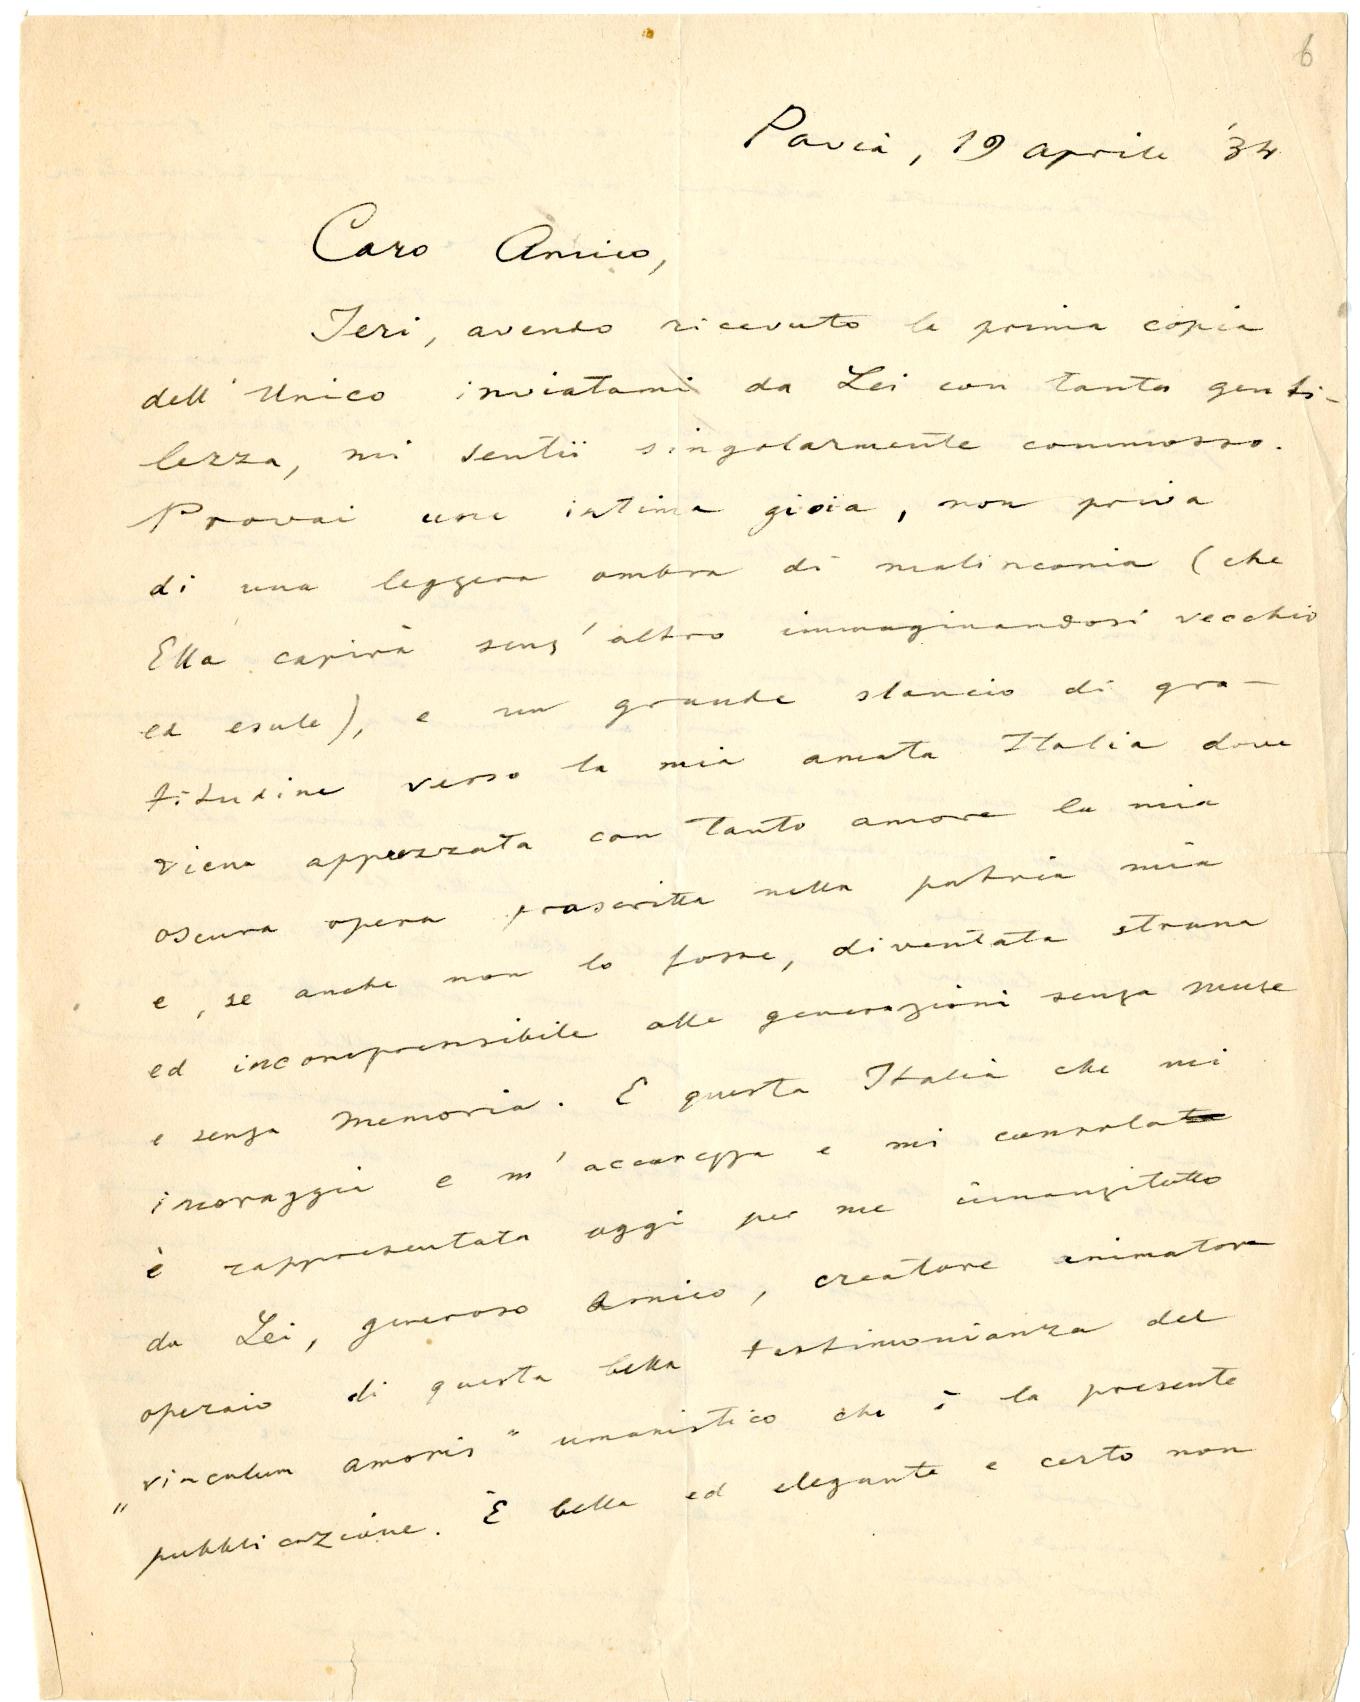 6
Pavia, 19 aprile '34
Caro Amico,
Ieri, avendo ricevuto la prima copia
dell'Unico inviatami da Lei con tanta genti-
lezza, mi sentii singolarmente commosso.
Provai una intima gioia, non priva
di una leggera ombra di malinconia (che
Ella capirà senz'altro immaginandosi vecchio
ed esule), e un grande slancio di gra-
titudine verso la mia amata Italia dove
viene apprezzata con tanto amore la mia
oscura opera proscritta nella patria mia
e, se anche non lo fosse, diventata strana
ed incomprensibile alle generazioni senza Muse
e senza Memoria. E questa Italia che mi
incoraggia e m'accarezza e mi consola
è rappresentata oggi per me innanzitutto
da Lei, generoso Amico, creatore animatore
operaio di questa bella testimonianza del
"vinculum amoris" umanistico che è la presente
pubblicazione. È bella ed elegante e certo non